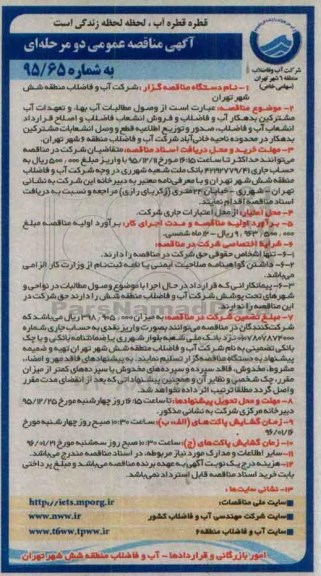 قطره قطره آب ، لحظه لحظه زندگی است
شرکت آب وفاضلاب
منطقه ۶ شهر تهران
(سهامی خاص)
آگهی مناقصه عمومی دو مرحله‌ای
به شماره ۹۵/۶۵
۱- نام دستگاه مناقصه گزار : شرکت آب و فاضلاب منطقه شش
شهر تهران
۲- موضوع مناقصه: عبارت است از وصول مطالبات آب بها، و تعهدات آب
مشترکین بدهکار آب و فاضلاب و فروش انشعاب فاضلاب و اصلاح قرارداد
انشعاب آب و فاضلاب، صدور و توزیع اطلاعیه قطع و وصل انشعابات مشترکین
بدهکار در محدوده ناحیه خانی‌آباد شرکت آب و فاضلاب منطقه ۶ شهر تهران.
۳- مهلت خرید و محل دریافت اسناد مناقصه: متقاضیان شرکت در مناقصه
می‌توانند حداکثر تا ساعت ۱۶:۱۵ مورخ ۹۵/۱۲/۸ با واریز مبلغ ۵۰۰,۰۰۰ ریال به
حساب جاری بانک ملت شعبه شهرری در وجه شرکت آب و فاضلاب
منطقه شش شهر تهران و با معرفی‌نامه معتبر به دبیرخانه این شرکت به نشانی
تهران - شهرری - خیابان ۲۴متری (زکریای رازی) مراجعه و نسبت به دریافت
اسناد مناقصه اقدام نمایند.
۴- محل اعتبار: از محل اعتبارات جاری شرکت.
۵- برآورد اولیه مناقصه و مدت اجرای کار: برآورد اولیه مناقصه مبلغ
ریال - ۱۲ ماه شمسی.
۶- شرایط اختصاصی شرکت در مناقصه:
۶-۱- تنها اشخاص حقوقی حق شرکت در مناقصه را دارند.
۶-۲- داشتن گواهینامه صلاحیت ایمنی یا نامه ثبت‌نام از وزارت کار الزامی
می‌باشد.
۶-۳- پیمانکارانی که قرارداد در حال اجرا با موضوع وصول مطالبات در نواحی و
شهرهای تحت پوشش شرکت آب و فاضلاب منطقه شش را دارند حق شرکت در
این مناقصه را ندارند.
۷- مبلغ تضمین شرکت در مناقصه: به میزان ریال می‌باشد که
شرکت‌کنندگان در مناقصه می‌توانند بصورت واریز نقدی به حساب جاری شماره
نزد بانک ملی شعبه بلوار شهرری یا ضمانتنامه بانکی و یا چک
بانکی تضمینی به نام شرکت آب و فاضلاب منطقه شش شهر تهران تهیه و ضمیمه
پیشنهاد به دستگاه مناقصه‌گزار تسلیم نمایند. به پیشنهادهای فاقد مهر و امضاء،
مشروط، مخدوش، فاقد سپرده و سپرده‌های مخدوش یا سپرده‌های کمتر از میزان
مقرر، چک شخصی و نظایر آن و همچنین پیشنهاداتی که بعد از انقضای مدت مقرر
واصل گردد مطلقا ترتیب اثر داده نخواهد شد.
۸- مهلت و محل تحویل پیشنهادها: تا ساعت ۱۶:۱۵ روز چهارشنبه مورخ ۹۵/۱۲/۲۵
دبیرخانه مرکزی شرکت به نشانی مذکور.
۹- زمان گشایش پاکت‌های (الف، ب): ساعت ۱۰:۳۰ صبح روز چهارشنبه مورخ
۹۶/۰۱/۱۶
۱۰- زمان گشایش پاکت‌های (ج): ساعت ۱۰:۳۰ صبح روز سه‌شنبه مورخ
۱۱- سایر اطلاعات و مدارک مورد نیاز مربوطه، در اسناد مناقصه مندرج می‌باشد.
۱۲- هزینه درج یک نوبت آگهی به عهده برنده مناقصه می‌باشد و مبلغ پرداختی
بابت خرید اسناد مناقصه قابل استرداد نمی‌باشد.
۱۳- نشانی سایت‌ها :
سایت ملی مناقصات: http://iets.mporg.ir
سایت شرکت مهندسی آب و فاضلاب کشور www.nww.ir
سایت آب و فاضلاب منطقه ۶ www.t6ww.tpww.ir
امور بازرگانی و قراردادها -- آب و فاضلاب منطقه شش شهر تهران